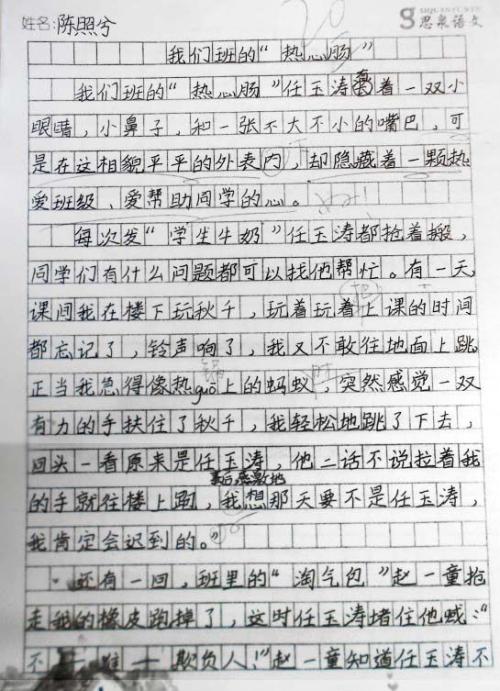 姓名:陈照兮
思泉语文
我们班的“热心肠”
我们班的“热心肠”任玉涛着一双小
眼睛,小鼻子,和一张不大不小的嘴巴,可
是在这相貌平平的外表内,却隐藏着一颗热
爱班级、爱帮助同学的心。
每次发“学生牛奶”任玉涛都抢着搬,
同学们有什么问题都可以找他帮忙。有一天,
课间我在楼下玩秋千,玩着玩着上课的时间
都忘记了,铃声响了,我又不敢往地面上跳
正当我急得像热guō上的蚂蚁,突然感觉一双
有力的手扶住了秋千,我轻松地跳了下去,
回头一看原来是任玉涛,他二话不说拉着我
事后,感激地
的手就往楼上跑,我想那天要不是任玉涛,
我肯定会迟到的。”
还有一回,班里的“淘气包”赵一童抢
走我的橡皮跑掉了,这时任玉涛堵住他喊:“
不——准——欺负人!”赵一童知道任玉涛不